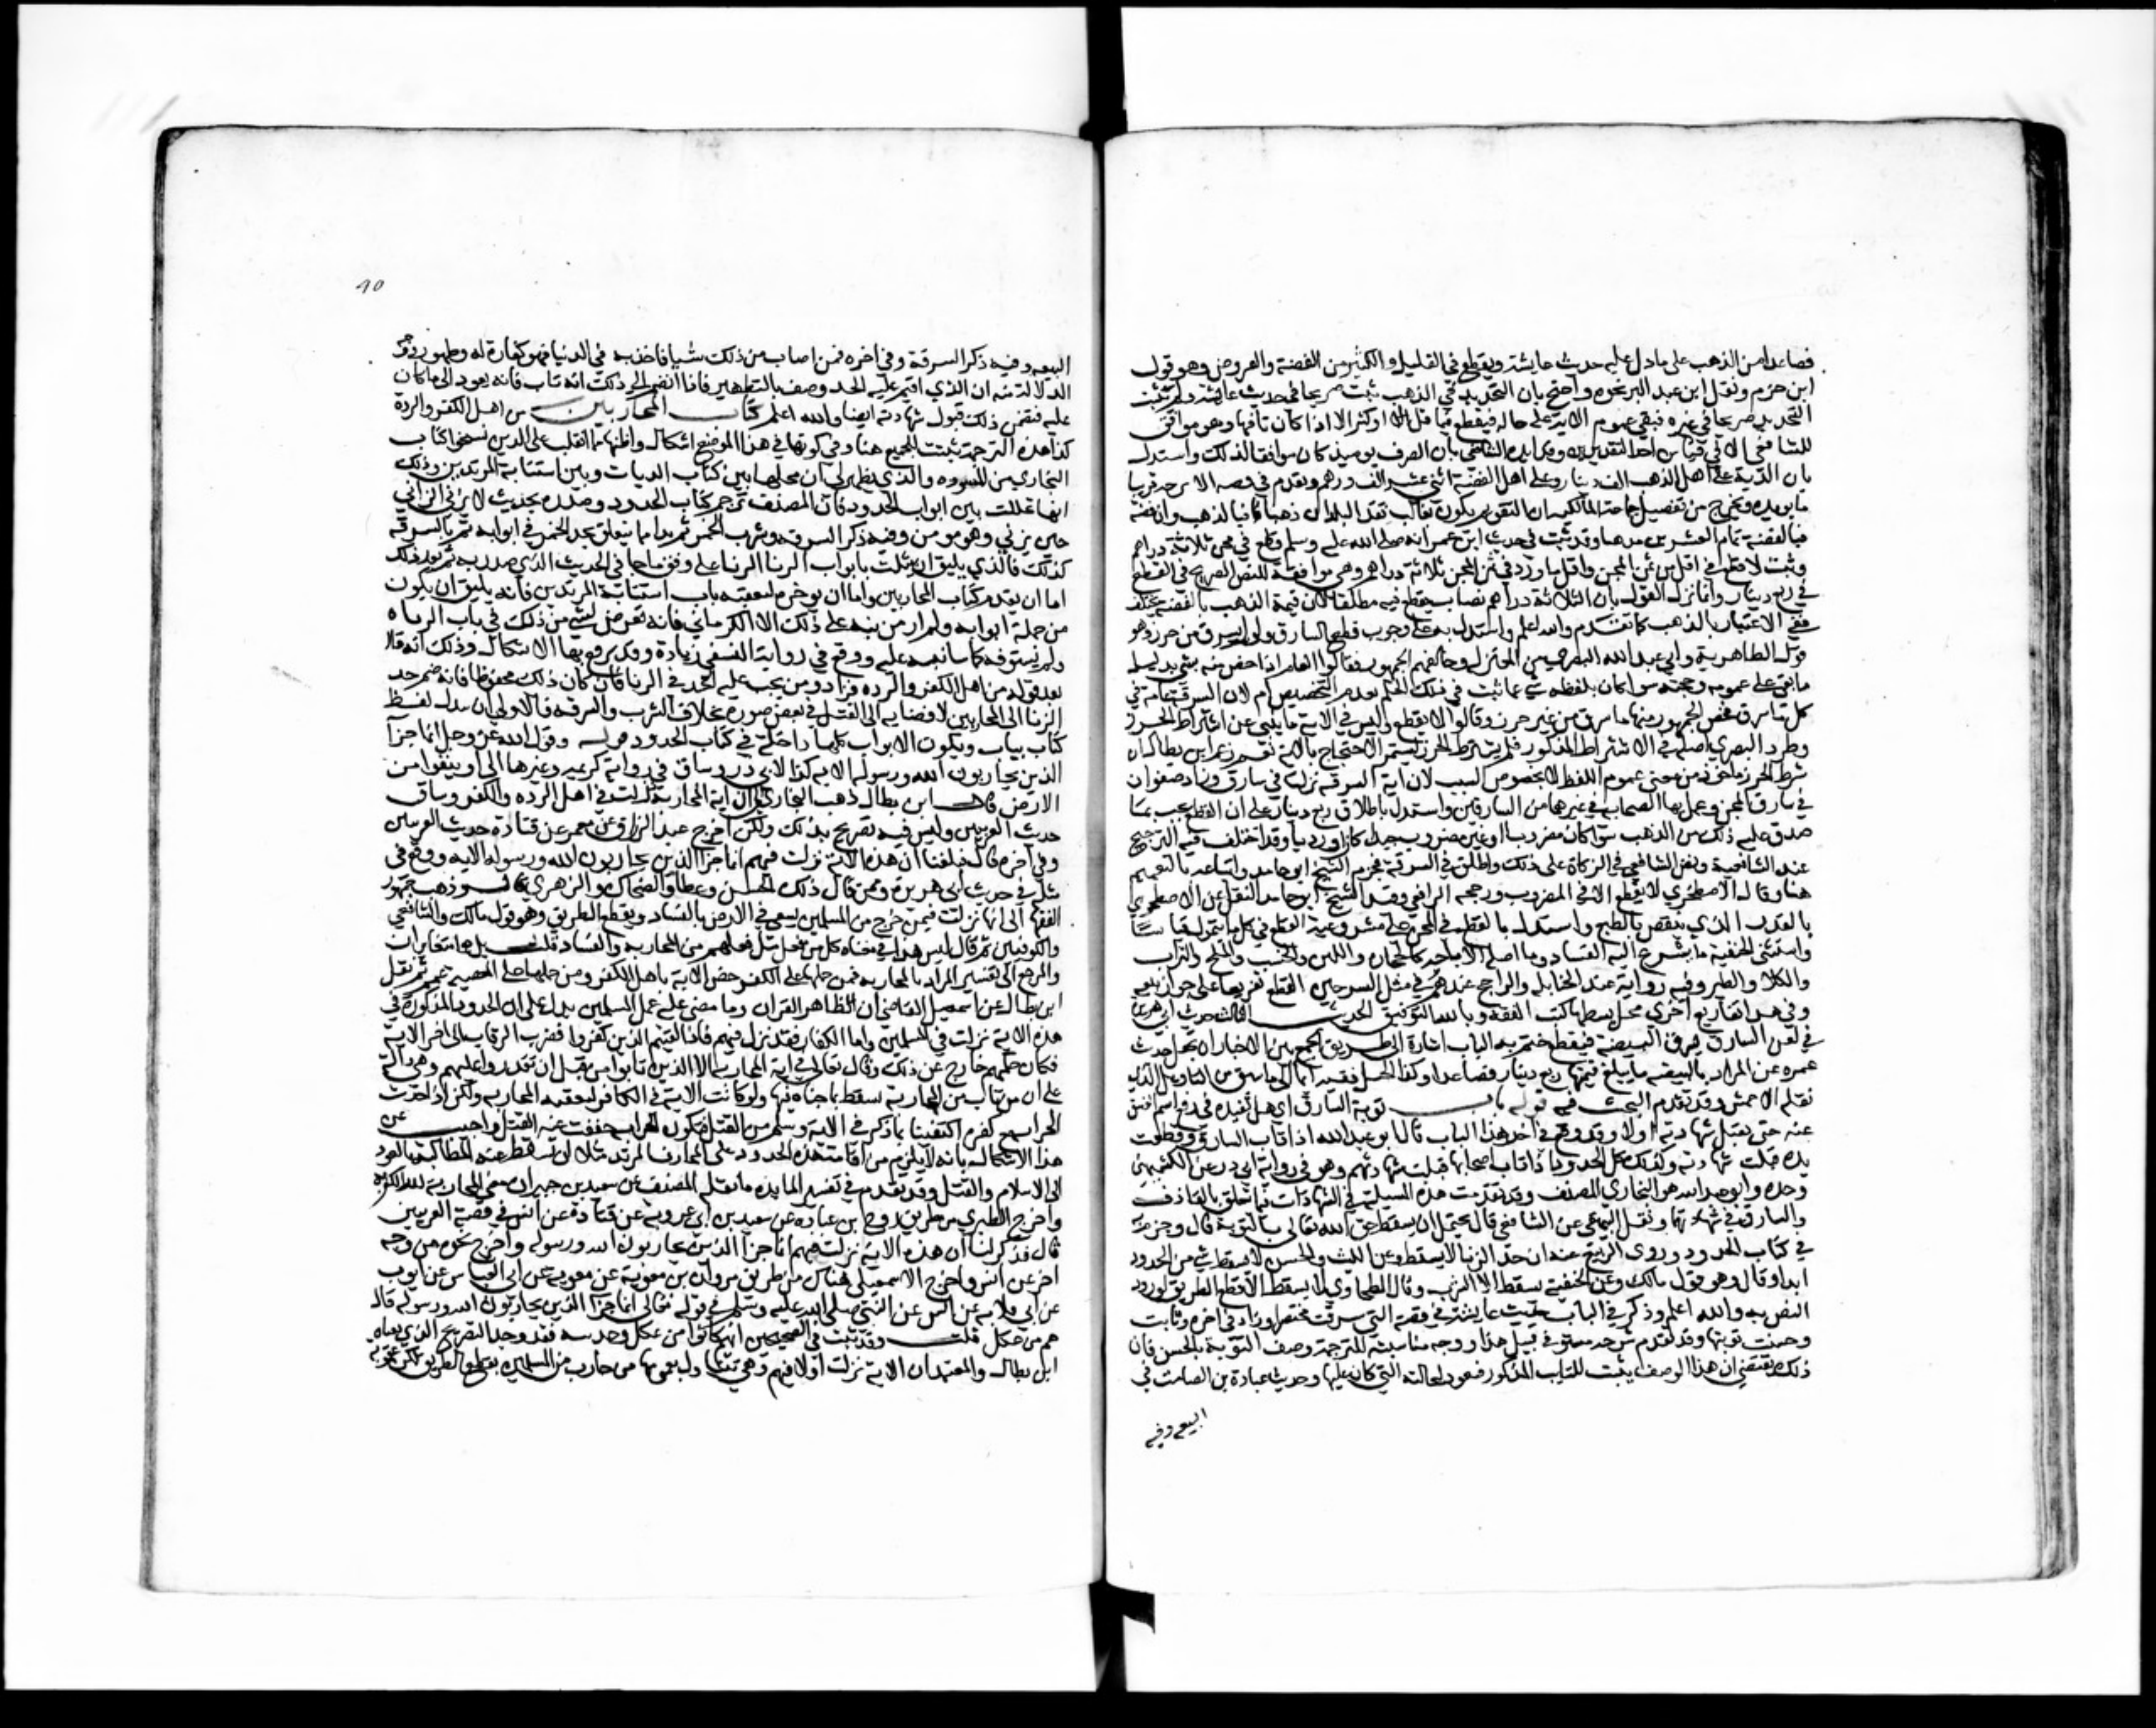 فصاعدا من الذهب على ما دل عليه حديث عايشة ويقطع في القليل والكثير من الفضة والعروض وهو قول
ابن حزم ونقل ابن عبد البر نحوه واحتج بان التحديد في الذهب ثبت صريحا في حديث عائشة ولم يثبت
التحديد صريحا في غيره فبقي عموم الاية على حاله فيقطع فيما قل او كثر الا اذا كان تافها وهو موافق
للشافعي الا في قياس احد النقدين على الاخر وقد ايده الشافعي بان الصرف يوميذ كان موافقا لذلك واستدل
بان الدية على اهل الذهب الف دينار وعلى اهل الفضة اثنى عشر الف درهم وتقدم في قصة الاترجة قريبا
ما يويده ويخرج من تفصيل جماعة المالكية ان التقويم يكون بغالب نقد البلد ان ذهبا فبالذهب وان فضة
فبالفضة تمام العشرين مذهبا وقد ثبت في حديث ابن عمر انه صلى الله عليه وسلم قطع في مجن ثلاثة دراهم
وثبت لا قطع في اقل من ثمن المجن واقل ما ورد في ثمن المجن ثلاثة دراهم وهي موافقة للنص الصريح في القطع
في ربع دينار وانما ترك القول بان الثلاثة دراهم نصاب يقطع فيه مطلقا لان قيمة الذهب بالفضة تختلف
فبقي الاعتبار بالذهب كما تقدم والله اعلم واستدل به على وجوب قطع السارق ولو لم يسرق من حرز وهو
قول الظاهرية وابي عبد الله البصري من المعتزلة وخالفهم الجمهور فقالوا العام اذا خص منه شي بدليل
ما بقي على عمومه وحجته سوا كان بلفظه ينبي عما ثبت في ذلك الحكم بعد التخصيص ام لا لان اية السرقة عامة في
كل من سرق فخص الجمهور منها ما سرق من غير حرز وقالوا لا يقطع وليس في الاية ما ينبي عن اشتراط الحرز
وطرد البصري اصله في الاشتراط المذكور فلم يشترط الحرز ليستمر الاحتجاج بالاية نعم زعم ابن بطال ان
شرط الحرز ماخوذ من معنى السرقة
في سارق المجن وعمل بها الصحابة في غيرهما من السارقين واستدل باطلاق ربع دينار على ان القطع يجب بما
صدق عليه ذلك من الذهب سوا كان مضروبا او غير مضروب جيدا كان او رديا وقد اختلف فيه الترجيح
عند الشافعية ونص الشافعي في الزكاة على ذلك واطلق في السرقة فجزم الشيخ ابو حامد واتباعه بالتعميم
هنا وقال الاصطخري لا يقطع الا في المضروب ورجحه الرافعي وقيد الشيخ ابو حامد النقل عن الاصطخري
بالقدر الذي ينقص بالطبع واستدل بالقطع في المجن على مشروعية القطع في كل ما يتمول قياسا
واستثنى الحنفية ما يسرع اليه الفساد وما اصله الاباحة كالحجارة واللبن والخشب والملح والتراب
والكلا والطير وفيه رواية عند الحنابلة والراجح عندهم في مثل السرجين القطع تفريعا على جواز بيعه
وفي هذا تفاريع اخرى محل بسطها كتب الفقه وبالله التوفيق الحديث الثالث حديث ابي هريرة
في لعن السارق يسرق البيضة فيقطع ختم به الباب اشارة الى طريق الجمع بين الاخبار ان يجعل حديث
عمرة عن المراد بالبيضة ما يبلغ قيمتها ربع دينار فصاعدا وكذا الحبل ففيه ايما الى ما سبق من التاويل الذي
نقله الاعمش وقد تقدم البحث فيه قوله باب توبة السارق اي هل تفيده في رفع اسم الفسق
عنه حتى تقبل شهادته اولا وقد وقع في اخر هذا الباب قال ابو عبد الله اذا تاب السارق وقطعت
يده قبلت شهادته وكذلك كل الحدود اذا تاب اصحابها قبلت شهادتهم وهو في رواية ابي ذر عن الكشميهني
وحده وابو عبد الله هو البخاري المصنف وقد تقدمت هذه المسيلة في الشهادات فيما يتعلق بالقاذف
والسارق في شهادتهما ونقل البيهقي عن الشافعي قال يحتمل ان يسقط حق الله تعالى بالتوبة قال وجزم به
في كتاب الحدود وروى الربيع عنه ان حد الزنا لا يسقط وعن الليث والحسن لا يسقط شي من الحدود
ابدا وقال وهو قول مالك وعن الحنفية يسقط الا الشرب وقال الطحاوي لا يسقط الا قطع الطريق لورود
النص به والله اعلم وذكر في الباب حديث عايشة في قصة التي سرقت مختصرا وزاد في اخره وتابت
وحسنت توبتها وقد تقدم شرحه مستوفى قبيل هذا ووجه مناسبته للترجمة وصف التوبة بالحسن فان
ذلك يقتضي ان هذا الوصف يثبت للتايب المذكور فيعود لحالته التي كان عليها وحديث عبادة بن الصامت في
البيعة وفيه
البيعة وفيه ذكر السرقة وفي اخره فمن اصاب من ذلك شيا فاخذ به في الدنيا فهو كفارة له وطهور ووجه
الدلالة منه ان الذي اقيم عليه الحد وصف بالتطهير فاذا انضم الى ذلك انه تاب فانه يعود الى ما كان
عليه فتضمن ذلك قبول شهادته ايضا والله اعلم كتاب المحاربين من اهل الكفر والردة
كذا هذه الترجمة ثبتت للجميع هنا وفي كونها في هذا الموضع اشكال واظنها مما انقلب على الذين نسخوا كتاب
البخاري من المسودة والذي يظهر لي ان محلها بين كتاب الديات وبين استتابة المرتدين وذلك
انها تخللت بين ابواب الحدود فان المصنف ترجم كتاب الحدود وصدره بحديث لا يزني الزاني
حين يزني وهو مومن وفيه ذكر السرقة وشرب الخمر ثم بدا بما يتعلق بحد الخمر في ابوابه ثم بالسرقة
كذلك فالذي يليق ان يثلث بابواب الزنا على وفق ما جا في الحديث الذي صدر به ثم بعد ذلك
اما ان يقدم كتاب المحاربين واما ان يوخره ليعقبه باب استتابة المرتدين فانه يليق ان يكون
من جملة ابوابه ولم ار من نبه على ذلك الا الكرماني فانه تعرض لشي من ذلك في باب الزناة
ولم يستوفه كما سانبه عليه ووقع في رواية النسفي زيادة وقد يرتفع بها الاشكال وذلك انه قال
بعد قوله من اهل الكفر والردة فزاد ومن يجب عليه الحد في الزنا فان كان ذلك محفوظا فانه ضم حد
الزنا الى المحاربين لافضايه الى القتل في بعض صوره بخلاف الشرب والسرقة فالاولى ان يبدل لفظ
كتاب بباب ويكون الابواب كلها داخلة في كتاب الحدود قوله وقول الله عز وجل انما جزآ
الذين يحاربون الله ورسوله الاية كذا لابي ذر وساق في رواية كريمة وغيرها الى او ينفوا من
الارض قال ابن بطال ذهب البخاري الى ان اية المحاربة نزلت في اهل الردة والكفر وساق
حديث العرنيين وليس فيه تصريح بذلك ولكن اخرج عبد الرزاق عن معمر عن قتادة حديث العرنيين
وفي اخره قال فبلغنا ان هذه الاية نزلت فيهم انما جزآ الذين يحاربون الله ورسوله الاية ووقع في
مثله في حديث ابي هريرة وممن قال ذلك الحسن وعطا والضحاك والزهري قال وذهب جمهور
الفقها الى انها نزلت فيمن خرج من المسلمين يسعى في الارض بالفساد ويقطع الطريق وهو قول مالك والشافعي
والكوفيين ثم قال ليس هذا
والمرجع الى تفسير المراد بالمحاربة فمن حملها على الكفر خص الاية باهل الكفر ومن حملها على المعصية عمم ثم نقل
ابن بطال عن اسمعيل القاضي ان ظاهر القران وما مضى عليه عمل المسلمين يدل على ان الحدود المذكورة في
هذه الاية نزلت في المسلمين واما الكفار فقد نزل فيهم فاذا لقيتم الذين كفروا فضرب الرقاب الى اخر الاية
فكان حكمهم خارج عن ذلك وقال تعالى في اية المحاربة الا الذين تابوا من قبل ان تقدروا عليهم وهي دالة
على ان من تاب من المحاربة يسقط
الحراب مع كفره اكتفينا بما ذكر في الاية وسلم من القتل فيكون الحراب خففت عنه القتل واجيب عن
هذا الاشكال بانه لا يلزم من اقامة هذه الحدود على المحارب المرتد مثلا ان تسقط عنه المطالبة بالعود
الى الاسلام والقتل وقد تقدم في تفسير المايدة ما نقله المصنف عن سعيد بن جبير ان معنى المحاربة لله الكفر به
واخرج الطبري من طريق روح بن عبادة عن سعيد بن ابي عروبة عن قتادة عن انس في قصة العرنيين
قال فذكر لنا ان هذه الاية نزلت فيهم انما جزآ الذين يحاربون الله ورسوله واخرج نحوه من وجه
اخر عن انس واخرج الاسمعيلي هناك من طريق مروان بن معوية عن معوية بن ابي العباس عن ايوب
عن ابي قلابة عن انس عن النبي صلى الله عليه وسلم في قوله تعالى انما جزآ الذين يحاربون الله ورسوله قال
هم من عكل قلت وقد ثبت في الصحيحين انهم كانوا من عكل وعرينة فقد وجد التصريح الذي نفاه
ابن بطال والمعتمد ان الاية نزلت اولا فيهم وهي تتناول بعمومها من حارب من المسلمين بقطع الطريق لكن عقوبة